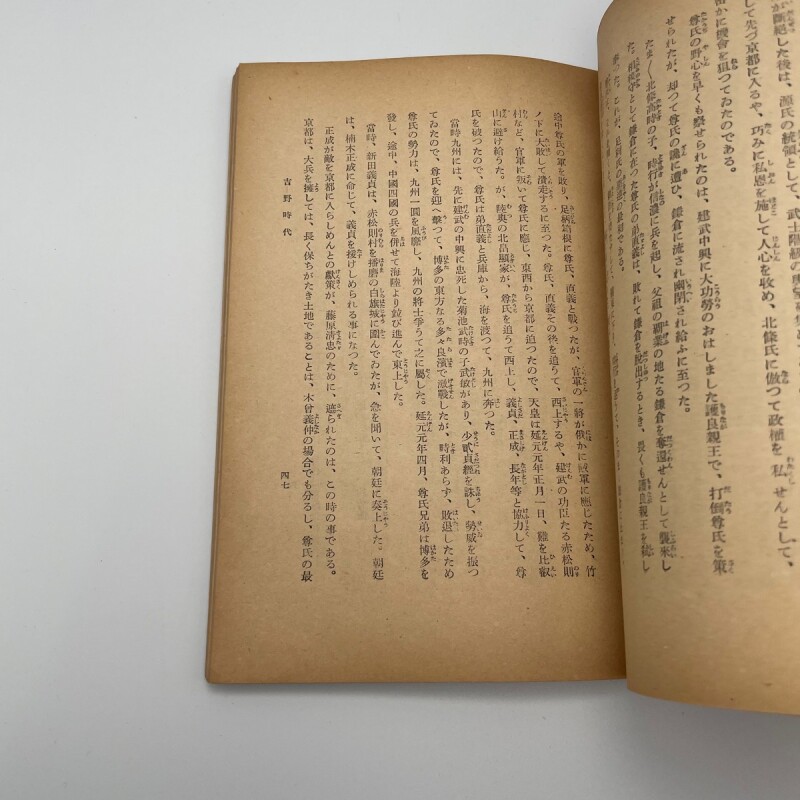 が斷絕した後は、源氏の統領として、武士階級の
して先づ京都に入るや、巧みに私恩を施して人心を收め、北條氏に倣つて政權を私せんとして、
かに機會を狙つてゐたのである。
尊氏の野心を早くも察せられたのは、建武中興に大功勞のおはしました護良親王で、打倒尊氏を策
せられたが、却つて尊氏の讒に遭ひ、鎌倉に流され幽閉され給ふに至つた。
たま〳〵北條高時の子、時行が信濃に兵を起し、父祖の覇業の地たる鎌倉を奪還せんとして襲來し
として鎌倉に在つた尊氏の弟直義は、敗れて鎌倉を脫出するとき、畏くも護良親王を弑し
途中尊氏の軍を敗り、足柄箱根に尊氏、直義と戰つたが、官軍の一將が俄かに賊軍に應じたため、竹
ノ下に大敗して潰走するに至つた。尊氏、直義その後を追うて、西上するや、建武の功臣たる赤松則
村など、官軍に叛いて尊氏に應じ、東西から京都に迫つたので、天皇は延元元年正月一日、難を比叡
山に避け給うた。が、陸奧の北畠顯家が、尊氏を追うて西上し、義貞、正成、長年等と協力して、尊
氏を破つたので、尊氏は弟直義と兵庫から、海を渡つて、九州に奔つた。
當時九州には、先に建武の中興に忠死した菊池武時の子武敏があり、少貳貞經を誅し、勢威を振つ
てゐたので、尊氏を迎へ擊つて、博多の東方なる多々良濱で激戰したが、時利あらず、敗退したため
尊氏の勢力は、九州一圓を風靡し、九州の將士爭うて之に屬した。延元元年四月、尊氏兄弟は博多を
發し、途中、中國四國の兵を併せて海陸より竝び進んで東上した。
當時、新田義貞は、赤松則村を播磨の白旗城に圍んでゐたが、急を聞いて、朝廷に奏上した。朝廷
は、楠木正成に命じて、義貞を援けしめられる事になつた。
正成が敵を京都に入らしめんとの獻策が、藤原淸忠のために、遮られたのは、この時の事である。
京都は、大兵を擁しては、長く保ちがたき土地であることは、木曾義仲の場合でも分るし、尊氏の最
吉野時代
四七